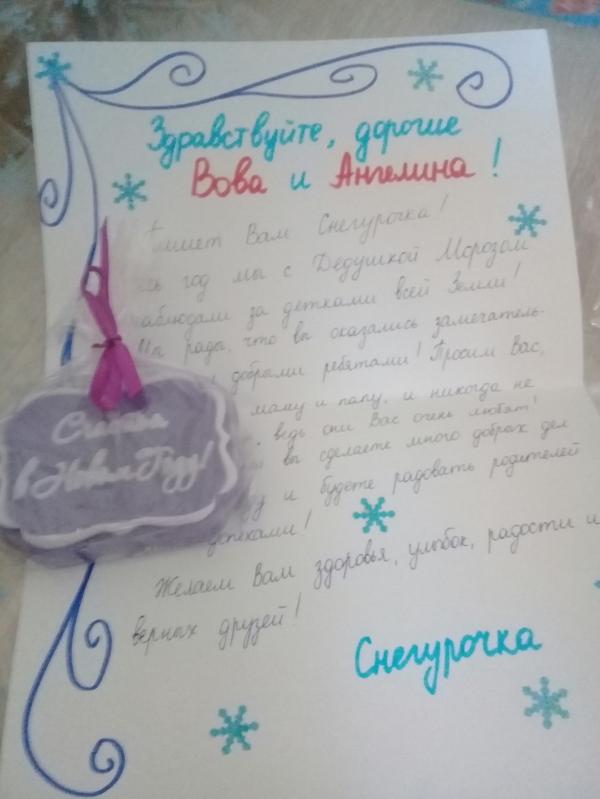 Здравствуйте, дорогие
Вова и Ангелина!
Пишет Вам Снегурочка!
год мы с Дедушкой Морозом
наблюдали за детками всей Земли!
Мы рады, что вы оказались замечатель-
добрыми ребятами! Просим Вас,
маму и папу, и никогда не
ведь они Вас очень любят!
вы сделаете много добрых дел
и будете радовать родителей
успехами!
Желаем Вам здоровья, улыбок, радости и
верных друзей!
Снегурочка
Счастья
в Новом Году!